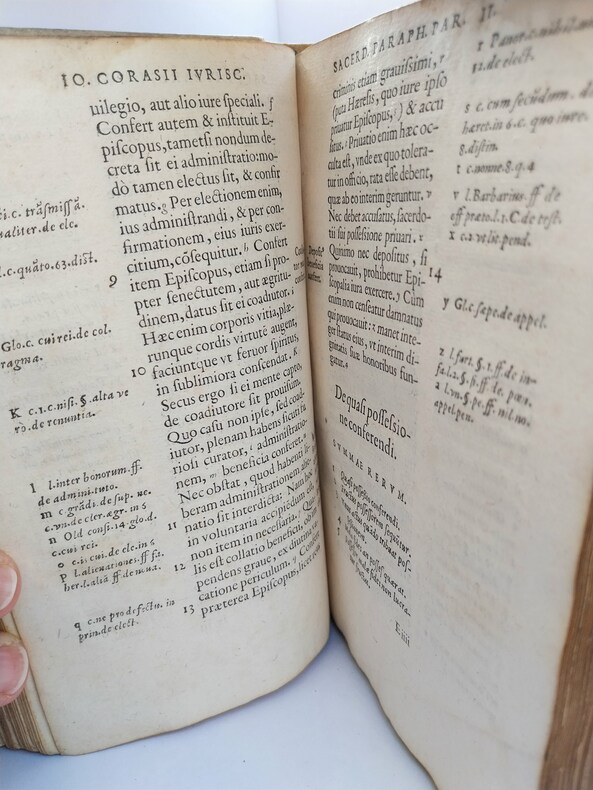 IO. CORASII IVRISC.
uilegio, aut alio iure speciali. f
Confert autem & instituit E-
piscopus, tametsi nondum de-
creta sit ei administratio: mo-
dò tamen electus sit, & confir
matus. g Per electionem enim,
ius administrandi, & per con-
firmationem, eius iuris exer-
citium, cõsequitur. h Confert
9 item Episcopus, etiam si pro-
pter senectutem, aut ægritu-
dinem, datus sit ei coadiutor. i
Hæc enim corporis vitia, ple-
runque cordis virtutẽ augent,
10 faciuntque vt feruor spiritus,
in sublimiora conscendat. K
Secus ergo si ei mente capto,
de coadiutore sit prouisum.
Quo casu non ipse, sed coad-
iutor, plenam habens sicuti fu
riosi curator, l administratio-
nem, m beneficia conferet. n
Nec obstat, quod habenti li-
beram administrationem, alie-
11 natio sit interdicta: Nam id
in voluntaria accipiendum est,
non item in necessaria. Qua-
12 lis est collatio beneficij, ob im-
pendens graue, ex diuturna va-
catione periculum. q Confert
13 præterea Episcopus, licet
i.c. trãsmissã.
qualiter.de ele.
l.c. quãto. 63. dist.
Glo.c. cui rei.de col.
ragma.
K c.1.c.nisi. §. alta ve
rò.de renuntia.
l l.inter bonorum.ff.
de admini.tuto.
m c.grãdi.de sup. ne.
c.vn.de cler.ægr.in 6
n Old consi.14.glo.d.
c.cui rei.
o c.i. cui.de ele.in 6
p l.alienationes.ff fa.
her.l.aliã ff de mua.
q c.ne pro defectu. in
prin.de elect.
SACERD. PARAPH. PAR. II.
criminis etiam grauissimi, r
(puta Hæresis, quo iure ipso
priuatur Episcopus, s) & accu
satus. t Priuatio enim hæc oc-
culta est, vnde ex quo tolera-
tur in officio, rata esse debent,
quæ ab eo interim geruntur. v
Nec debet accusatus, sacerdo-
tij sui possessione priuari. x
Quinimo nec depositus, si
14 prouocauit, prohibetur Epi-
scopalia iura exercere. y Cum
enim non censeatur damnatus
qui prouocauit: z manet inte-
ger status eius, vt interim di-
gnitatis suæ honoribus fun-
gatur. a
De quasi possessio-
ne conferendi.
SVMMAE RERVM.
E iiii
r Panor.
12.de elect.
s c. cum secũdum. de
hæret.in 6.c. quo iure.
8.distin.
t c.nonne.8.q.4
v l.Barbarius.ff de
off præto.l.1.C de test.
x c.2.vt lit.pend.
y Gl.c sæpe.de appel.
z l.furti. §.1.ff.de in-
a l.vn. §.pe.ff. nil.no.
appel.pen.